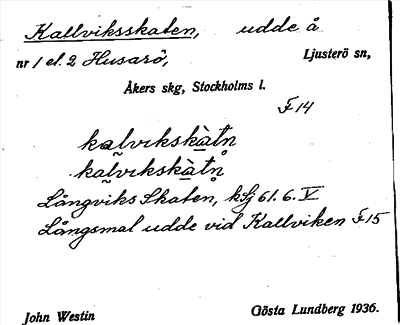 Kallviksskaten, udde å
nr 1 el. 2 Husarö, Ljusterö sn,
Åkers skg, Stockholms l.
F 14
kalvıkskàtn̥
kalvıkskàtn̥
Långviks Skaten, kSj 61. 6. V
Långsmal udde vid Kallviken F 15
John Westin Gösta Lundberg 1936.